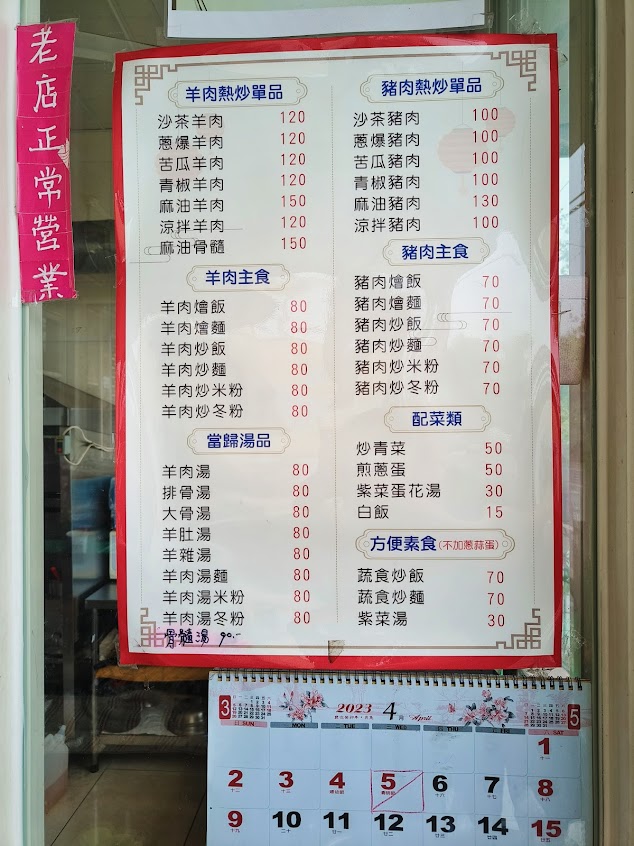 老店正常營業
羊肉熱炒單品
沙茶羊肉 120
蔥爆羊肉 120
苦瓜羊肉 120
青椒羊肉 120
麻油羊肉 150
涼拌羊肉 120
麻油骨髓 150
羊肉主食
羊肉燴飯 80
羊肉燴麵 80
羊肉炒飯 80
羊肉炒麵 80
羊肉炒米粉 80
羊肉炒冬粉 80
當歸湯品
羊肉湯 80
排骨湯 80
大骨湯 80
羊肚湯 80
羊雜湯 80
羊肉湯麵 80
羊肉湯米粉 80
羊肉湯冬粉 80
骨髓湯 90.-
豬肉熱炒單品
沙茶豬肉 100
蔥爆豬肉 100
苦瓜豬肉 100
青椒豬肉 100
麻油豬肉 130
涼拌豬肉 100
豬肉主食
豬肉燴飯 70
豬肉燴麵 70
豬肉炒飯 70
豬肉炒麵 70
豬肉炒米粉 70
豬肉炒冬粉 70
配菜類
炒青菜 50
煎蔥蛋 50
紫菜蛋花湯 30
白飯 15
方便素食(不加蔥蒜蛋)
蔬食炒飯 70
蔬食炒麵 70
紫菜湯 30
3 2023 4月 April 5
SUN MON TUE WED THU FRI SAT
1
十一
2 3 4 5 6 7 8
9 10 11 12 13 14 15